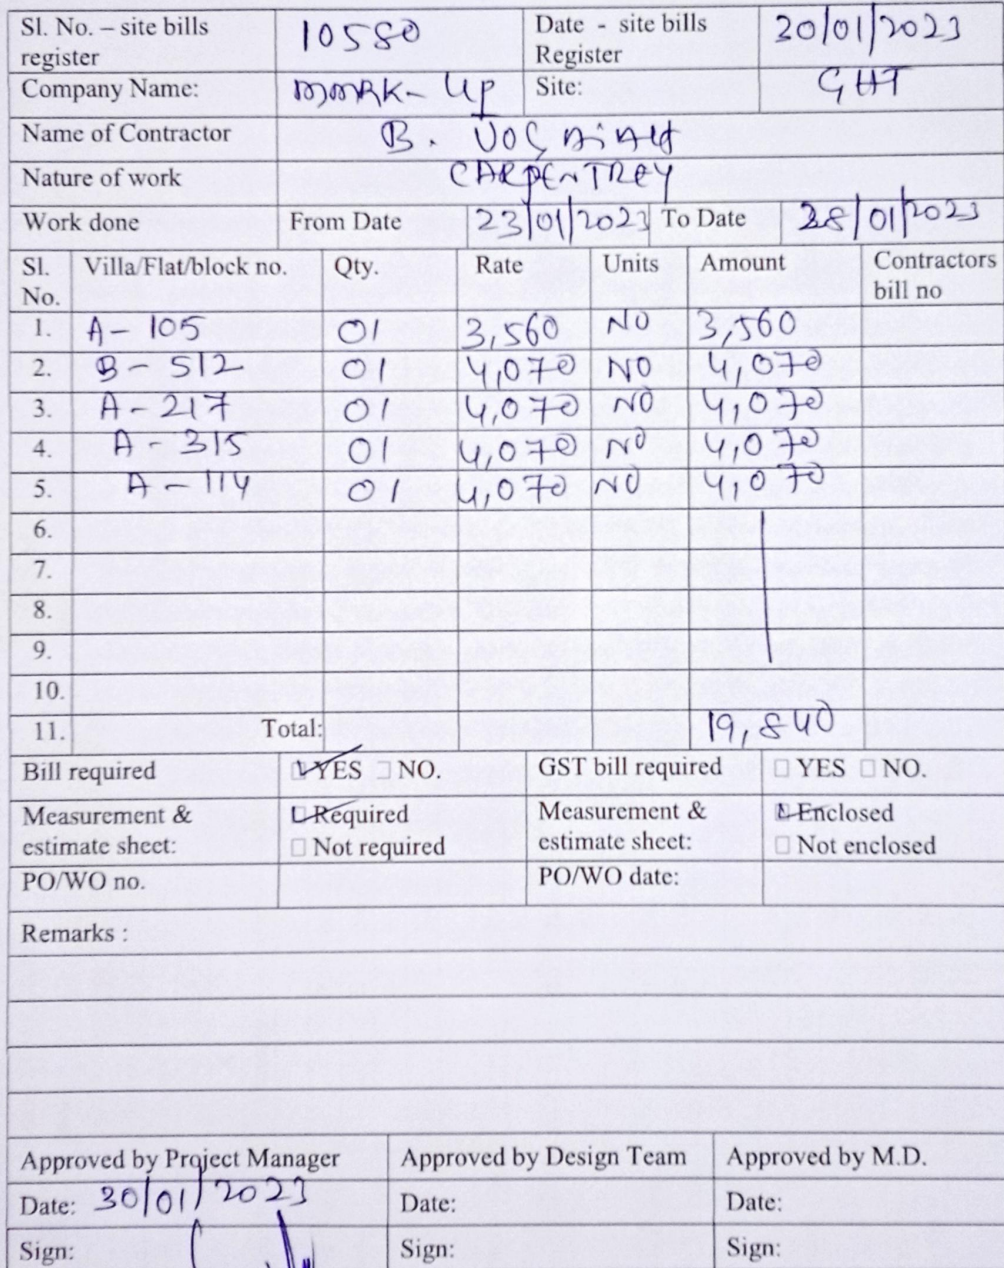 Sl. No. – site bills register 10580 Date - site bills Register 30/01/2023
Company Name: MMRK- Up Site: GHT
Name of Contractor B.
Nature of work CARPENTREY
Work done From Date 23/01/2023 To Date 28/01/2023
Sl. No. Villa/Flat/block no. Qty. Rate Units Amount Contractors bill no
1. A - 105 01 3,560 NO 3,560
2. B - 512 01 4,070 NO 4,070
3. A - 217 01 4,070 NO 4,070
4. A - 315 01 4,070 NO 4,070
5. A - 114 01 4,070 NO 4,070
6.
7.
8.
9.
10.
11. Total: 19,840
Bill required YES NO. GST bill required YES NO.
Measurement & estimate sheet: Required Not required Measurement & estimate sheet: Enclosed Not enclosed
PO/WO no. PO/WO date:
Remarks :
Approved by Project Manager Approved by Design Team Approved by M.D.
Date: 30/01/2023 Date: Date:
Sign: Sign: Sign: